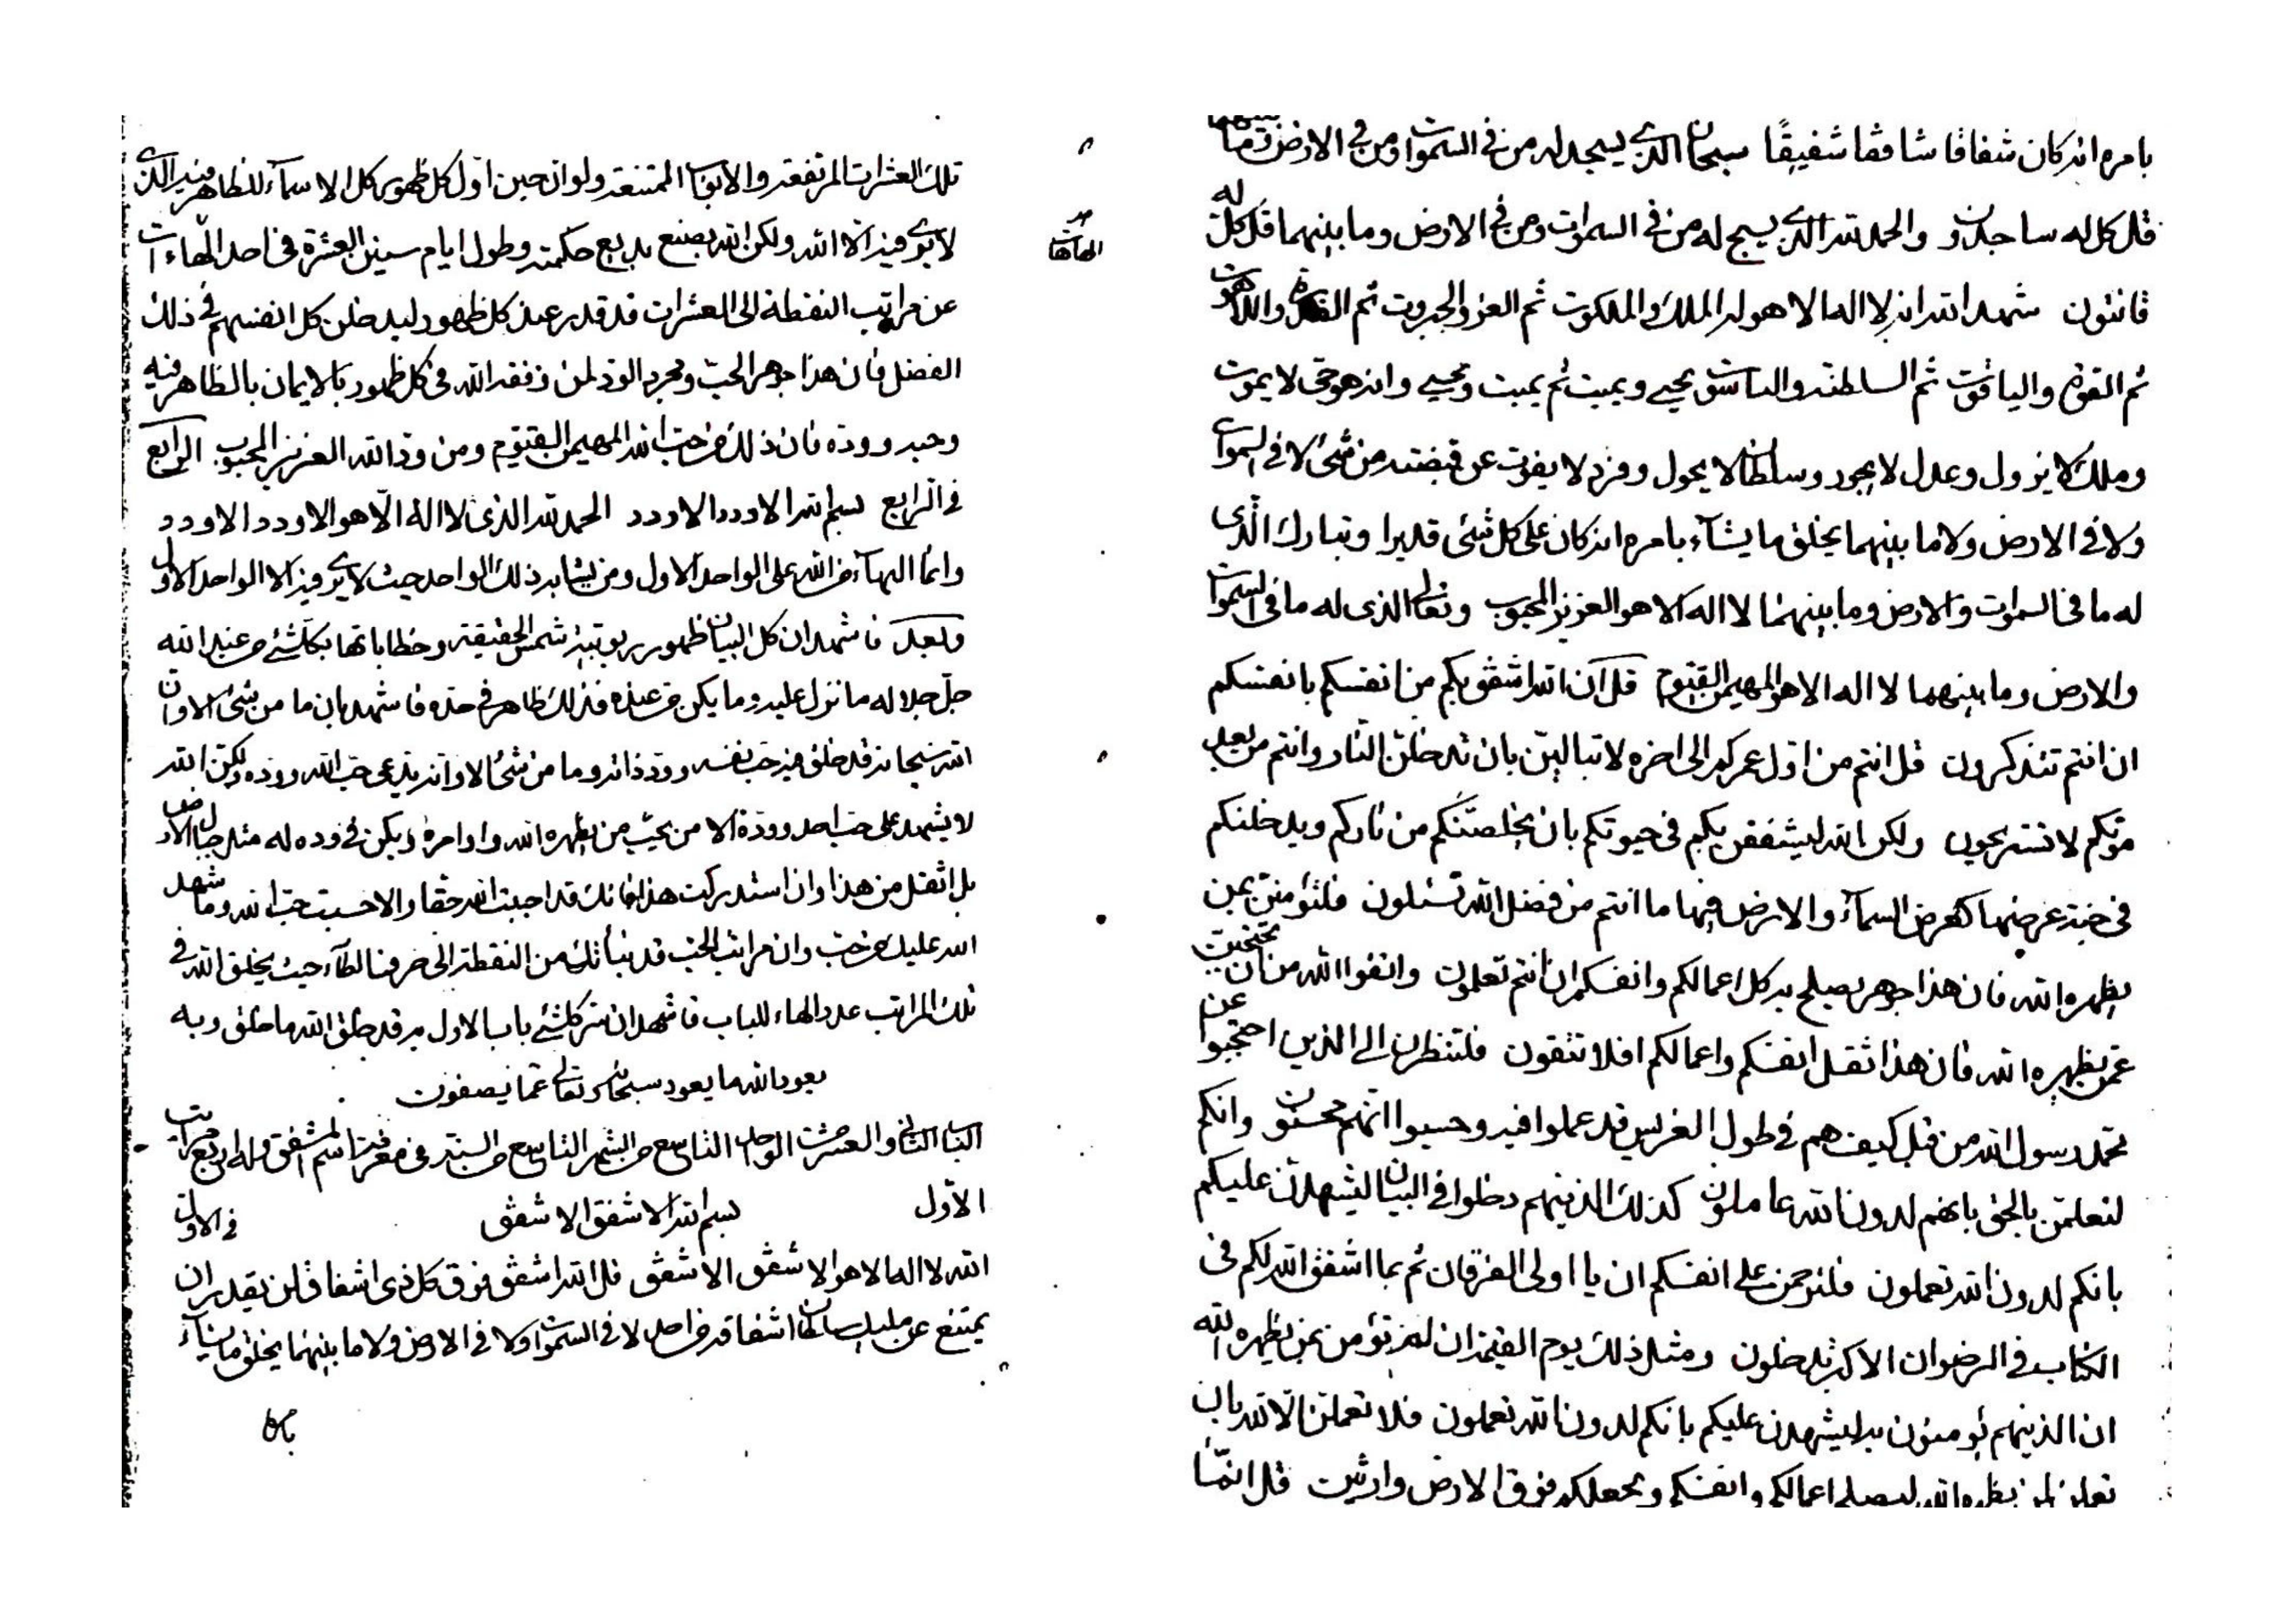 تلك العشرات المرتفعة والابواب الممتنعة ولو ان حين اول كل ظهور كل الاسمآء للظاهر فيه الذى
لا يرى فيه الا الله ولكن الله يصنع بديع حكمته وطول ايام سنين العشرة فى احد الهاءات
عن مراتب النقطة الى العشرات قد قدر عند كل ظهور ليدخلن كل انفسهم فى ذلك
الفضل فان هذا جوهر الحب ومجرد الود لمن وفقه الله فى كل ظهور بالايمان بالظاهر فيه
وحبه ووده فان ذلك من حب الله المهيمن القيوم ومن ود الله العزيز المحبوب الرابع
فى الرابع بسم الله الاودد الاودد الحمد لله الذى لا اله الا هو الاودد الاودد
وانما البهآء من الله على الواحد الاول ومن يشابه ذلك الواحد حيث لا يرى فيه الا الواحد الاول
وبعد فاشهد ان كل البيان ظهور ربوبية شمس الحقيقة وخطاباتها بكلشئ من عند الله
جل جلاله ما نزل عليه وما يكن من عنده فذلك ظاهر فى حده فاشهد بان ما من شئ الا وان
الله سبحانه قد خلق فيه حب نفسه وود ذاته وما من شئ الا وانه يدعى حب الله ووده ولكن الله
لا يشهد على حب احد ووده الا من يحب من يظهره الله واوامره ويكن فى وده له مثل جبال الارض
بل اثقل من هذا وان استدركت هذا فانك قد احببت الله حقا والا حسبت حب الله وما شهد
الله عليك من حب وان مراتب الحب قد نبأتك من النقطة الى حرف الطآء حيث يخلق الله فى
تلك المراتب عدد الهاء للباب فاشهد ان سر كلشئ باب الاول به قد خلق الله ما خلق وبه
يعود الله ما يعود سبحانه وتعالى عما يصفون
الباب الثانى والعشر من الواحد التاسع من الشهر التاسع من السنة فى معرفة اسم المشفق وله اربع مراتب
الاول بسم الله الاشفق الاشفق فى الاول
الله لا اله الا هو الاشفق الاشفق قل الله اشفق فوق كل ذى اشفاق لن يقدر ان
يمتنع عن مليك سلطان اشفاقه من احد لا فى السموات ولا فى الارض ولا ما بينهما يخلق ما يشآء
بامره
بامره انه كان شفاقا شافقا شفيقا سبحان الذى يسجد له من فى السموات ومن فى الارض وما بينهما
قل كل له ساجدون والحمد لله الذى يسبح له من فى السموات ومن فى الارض وما بينهما قل كل له
قانتون شهد الله انه لا اله الا هو له الملك والملكوت ثم العز والجبروت ثم القدرة واللاهوت
ثم القوة والياقوت ثم السلطنة والناسوت يحيى ويميت ثم يميت ويحيى وانه هو حى لا يموت
وملك لا يزول وعدل لا يجور وسلطان لا يحول وفرد لا يفوت عن قبضته من شئ لا فى السموات
ولا فى الارض ولا ما بينهما يخلق ما يشآء بامره انه كان على كل شئ قديرا وتبارك الذى
له ما فى السموات والارض وما بينهما لا اله الا هو العزيز المحبوب وتعالى الذى له ما فى السموات
والارض وما بينهما لا اله الا هو المهيمن القيوم قل ان الله اشفق بكم من انفسكم بانفسكم
ان انتم تتذكرون قل انتم من اول عمركم الى اخره لا تبالين بان تدخلن النار وانتم من بعد
موتكم لا تستريحون ولكن الله ليشفقن بكم فى حيوتكم بان يخلصنكم من ناركم ويدخلنكم
فى جنة عرضها كعرض السمآء والارض فيها ما انتم من فضل الله تسئلون فلتؤمنن بمن
يظهره الله فان هذا جوهر يصلح به كل اعمالكم وانفسكم ان انتم تعلمون واتقوا الله من ان تحتجبن
عمن يظهره الله فان هذا ثقل انفسكم واعمالكم افلا تتقون فلتنظرن الى الذين احتجبوا عن
محمد رسول الله من قبل كيف هم فى طول الغرس قد عملوا فيه وحسبوا انهم محسنون وانكم
لتعلمن بالحق بانهم لدون الله عاملون كذلك الذينهم دخلوا فى البيان ليشهدن عليكم
بانكم لدون الله تعملون فلترحمن على انفسكم ان يا اولى الفرقان ثم بما اشفق الله لكم فى
الكتاب فى الرضوان الاكبر تدخلون ومثل ذلك يوم القيمة ان لم تؤمنن بمن يظهره الله
ان الذينهم يؤمنون به ليشهدن عليكم بانكم لدون الله تعملون فلا تعملن الا لله بان
تعملن لمن يظهره الله ليصلح اعمالكم وانفسكم ويجعلكم فوق الارض وارثين قل انما